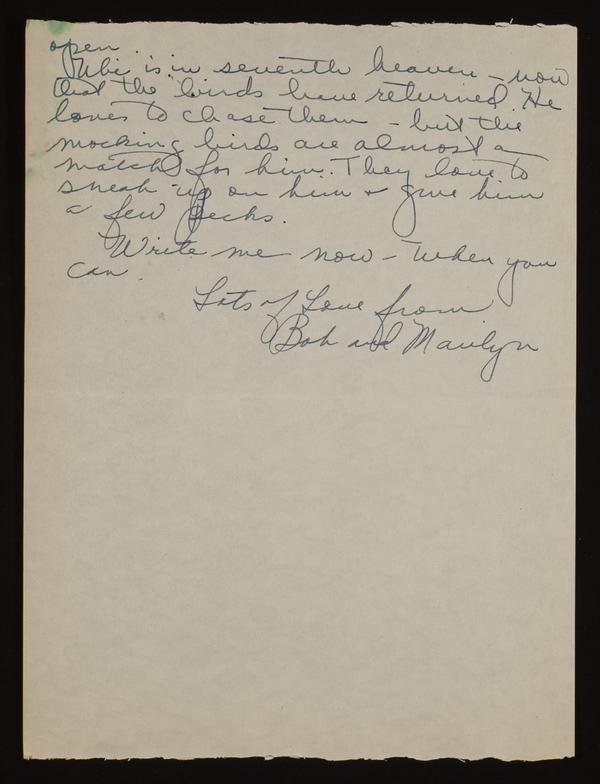 open.
Ubi is in seventh heaven - now
that the birds have returned. He
loves to chase them - but the
mocking birds are almost a
match for him. They love to
sneak-up on him & give him
a few pecks.
Write me now - when you
can.
Lots of Love from
Bob and Marilyn